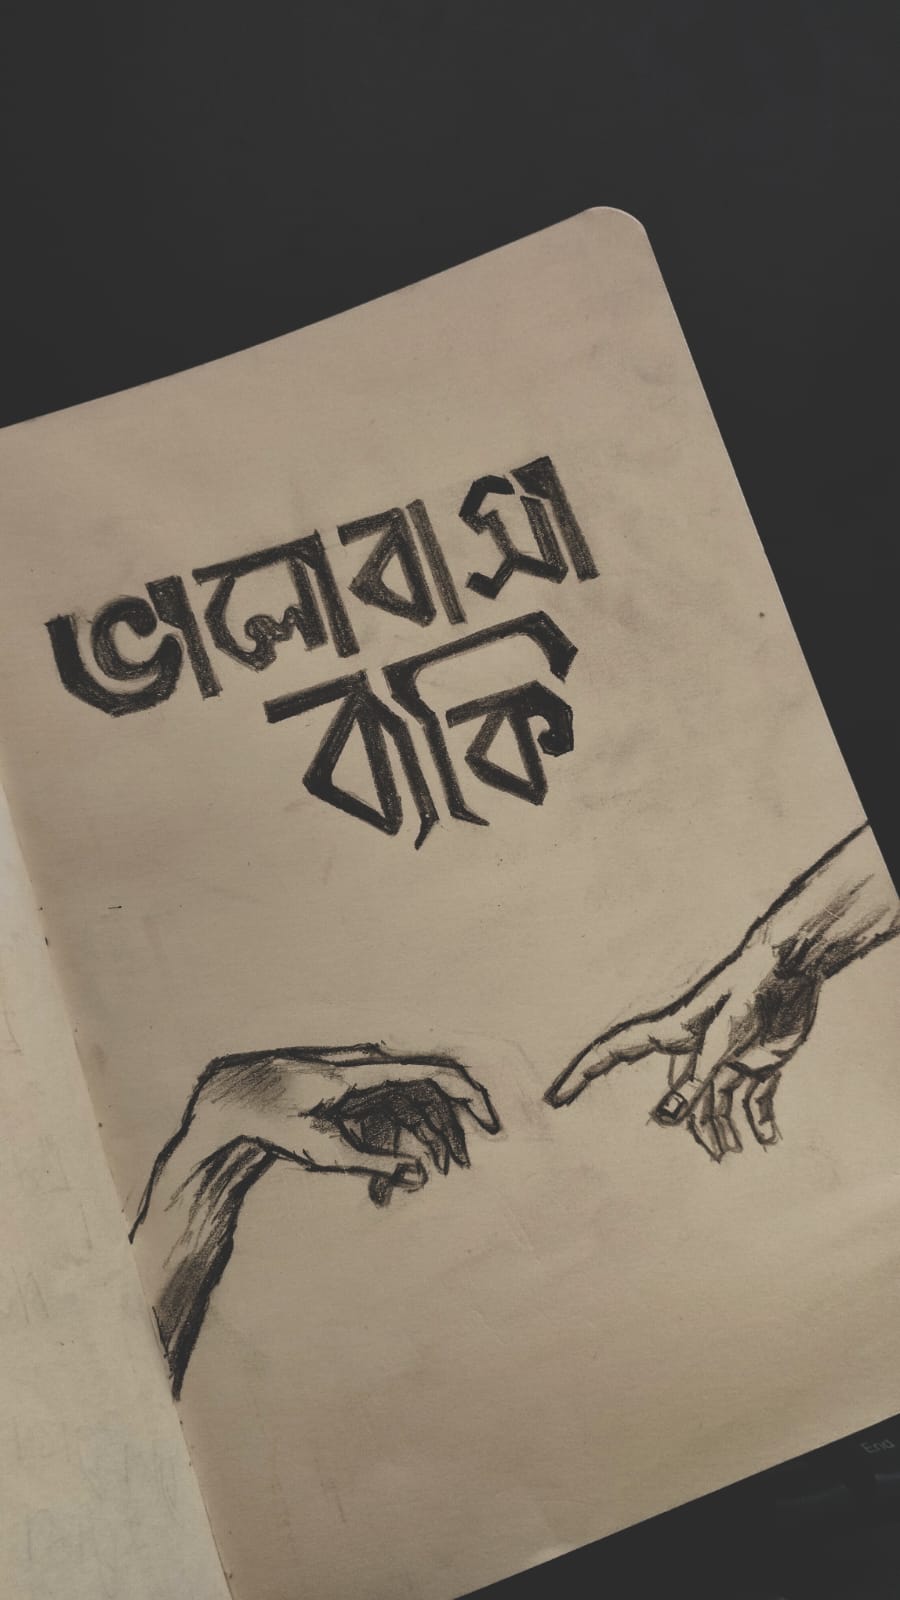 ভালোবাসা
বাকি
End